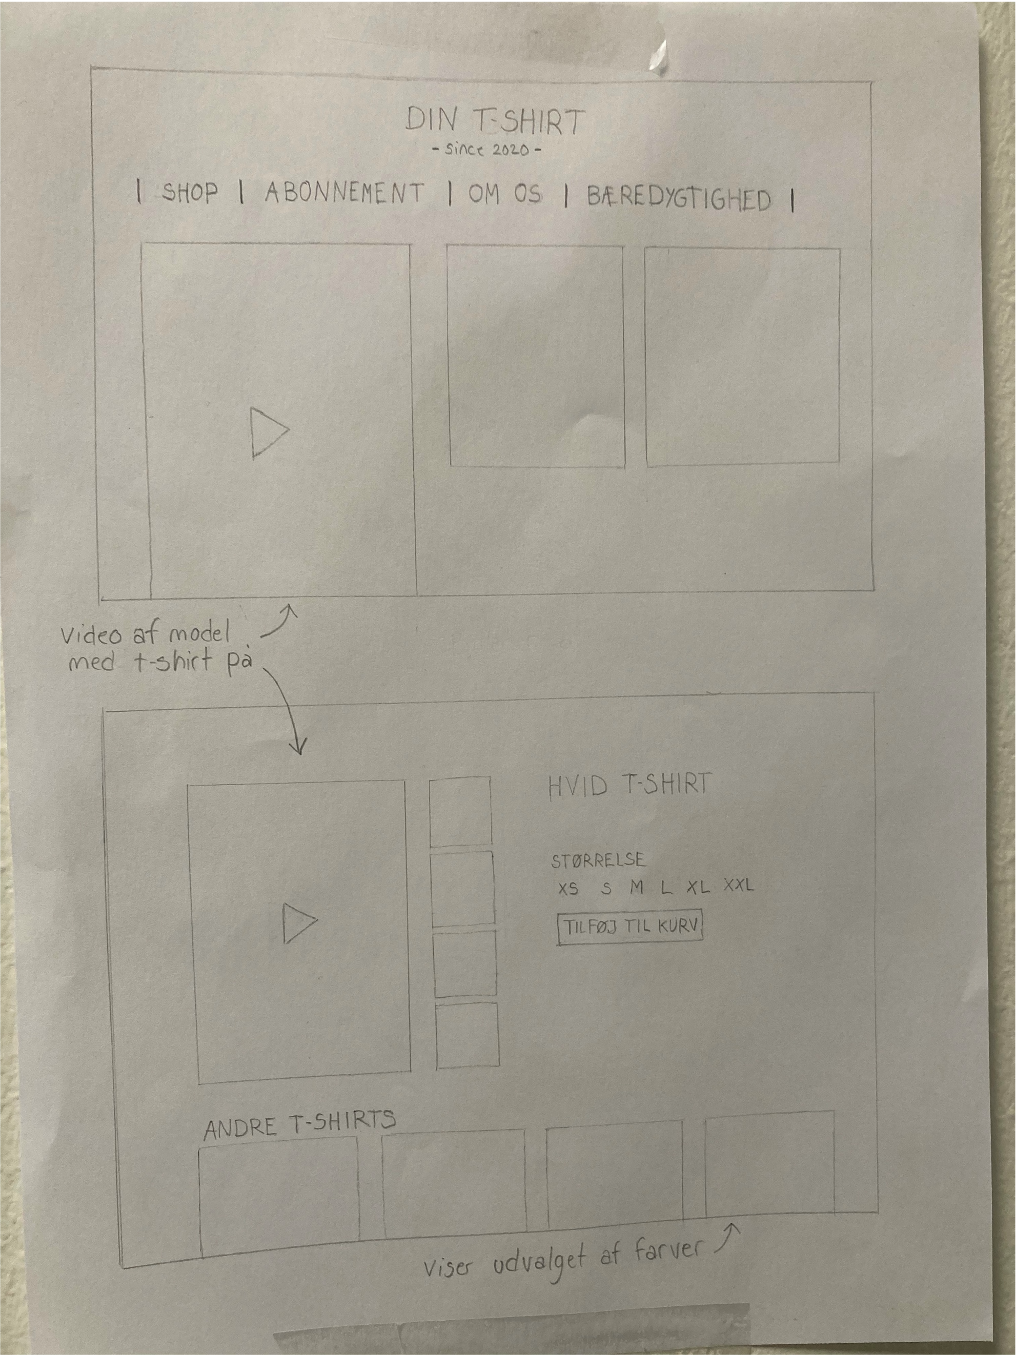 DIN T-SHIRT
- Since 2020 -
| SHOP | ABONNEMENT | OM OS | BÆREDYGTIGHED |
Video af model
med t-shirt på
HVID T-SHIRT
STØRRELSE
XS S M L XL XXL
TILFØJ TIL KURV
ANDRE T-SHIRTS
Viser udvalget af farver